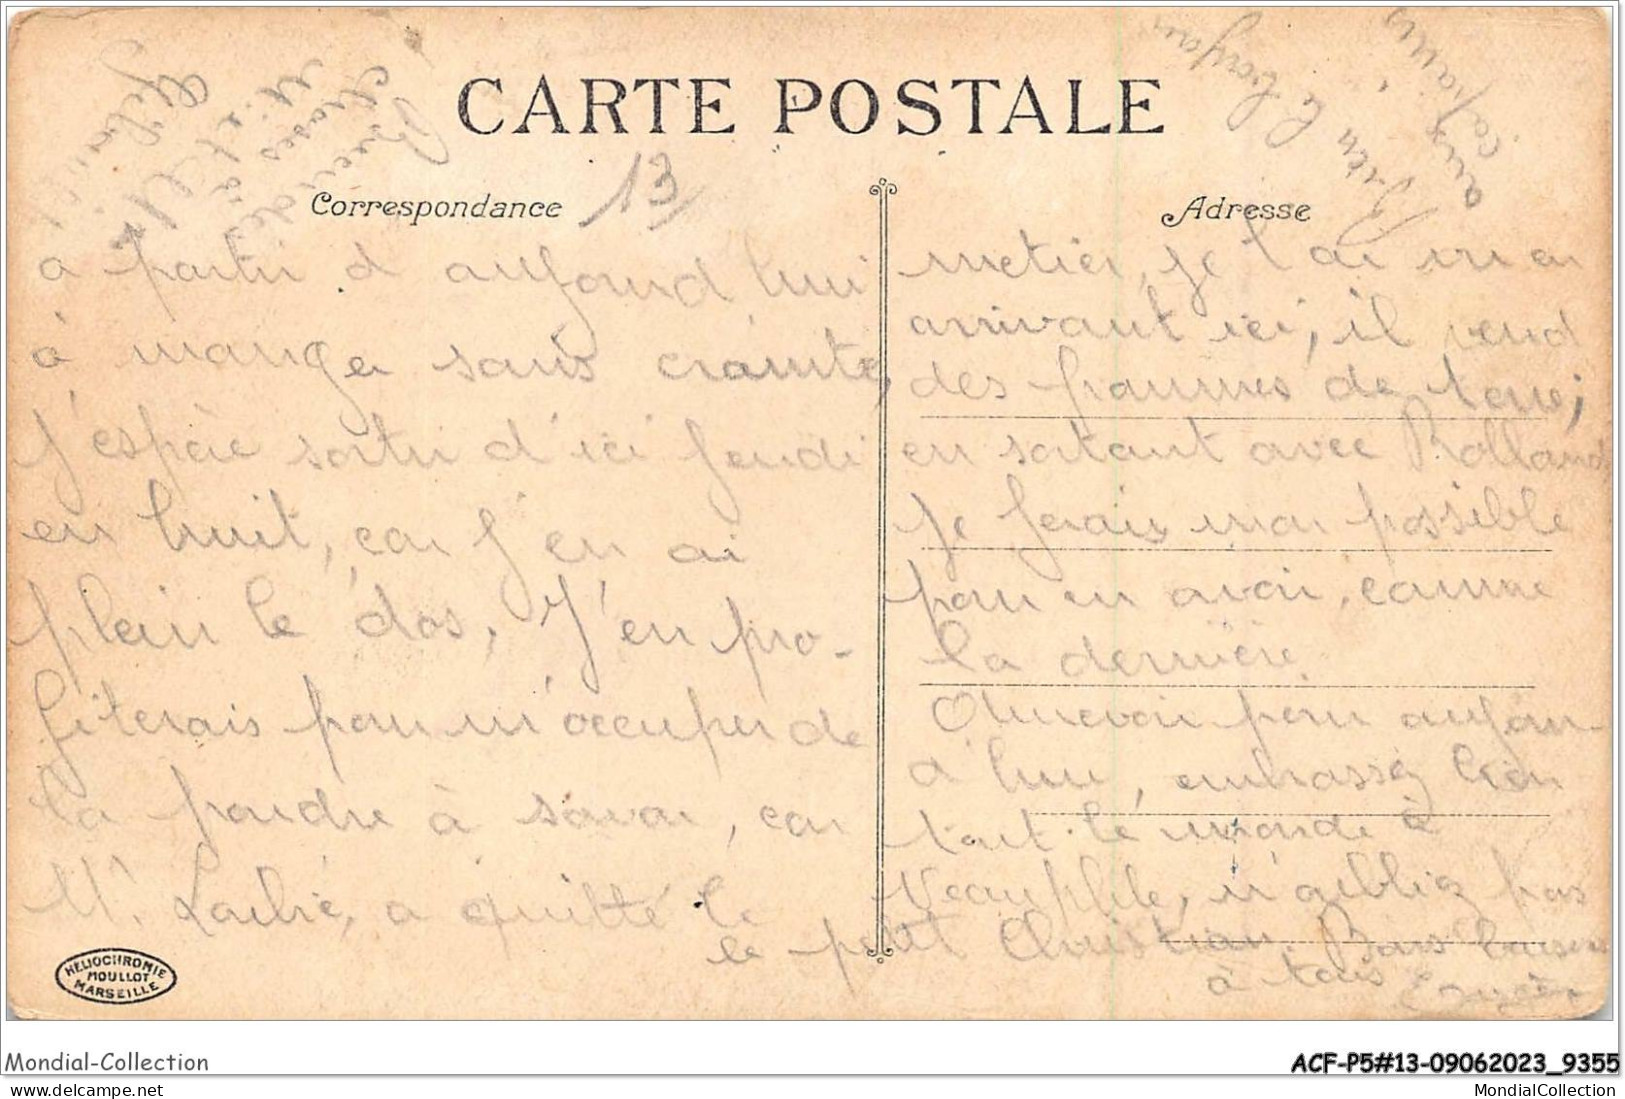 CARTE POSTALE
Correspondance
13
Adresse
à partir d aujourd hui
à manger sans crainte,
J'espère sortir d'ici jeudi
en huit, car j'en ai
plein le dos, J'en pro-
fiterais pour m'occuper de
la poudre à savon, car
Mr a quitté le
métier, je l'ai vu en
arrivant ici, il vend
des pommes de terre,
en sortant avec Rolland
je ferais mon possible
pour en avoir, comme
la dernière.
au revoir pour aujour-
d'hui, embrassez bien
tout le monde à
n'oubliez pas
le petit Christian. Bons baisers
à tous
bien le
aux
HELIOCHROMIE
MOULLOT
MARSEILLE
Mondial-Collection
ACF-P5#13-09062023_9355
www.delcampe.net
MondialCollection